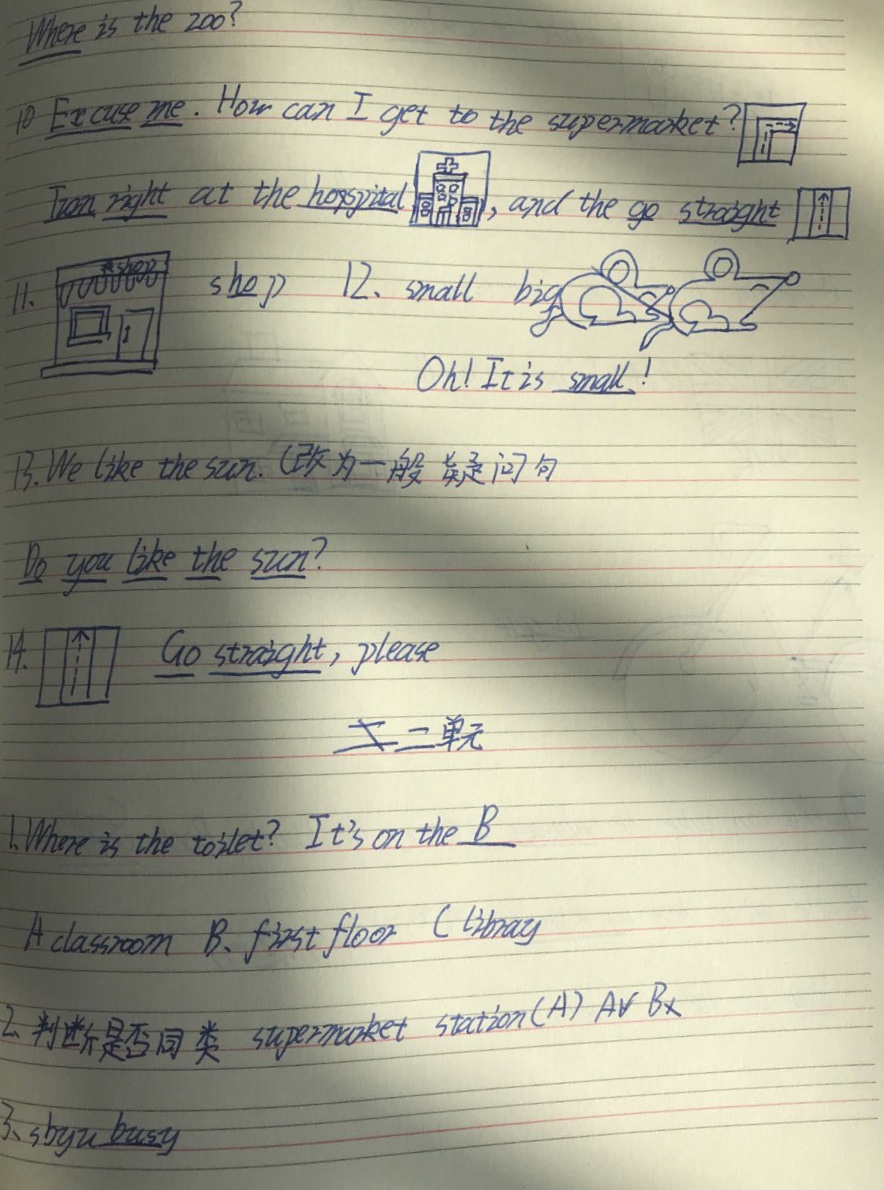 Where is the zoo?
10 Excuse me. How can I get to the supermarket?
Tran right at the hogspital, and the go straight
11. shop shop 12. small big
Oh! It is small!
13. We like the sun. (改为一般疑是问句
Do you like the sun?
14. Go straight, please
二单元
1. Where is the toilet? It's on the B
A classroom B. first floor C libray
2. 判断是否同类 supermarket station (A) A√ B×
3. sbyu busy